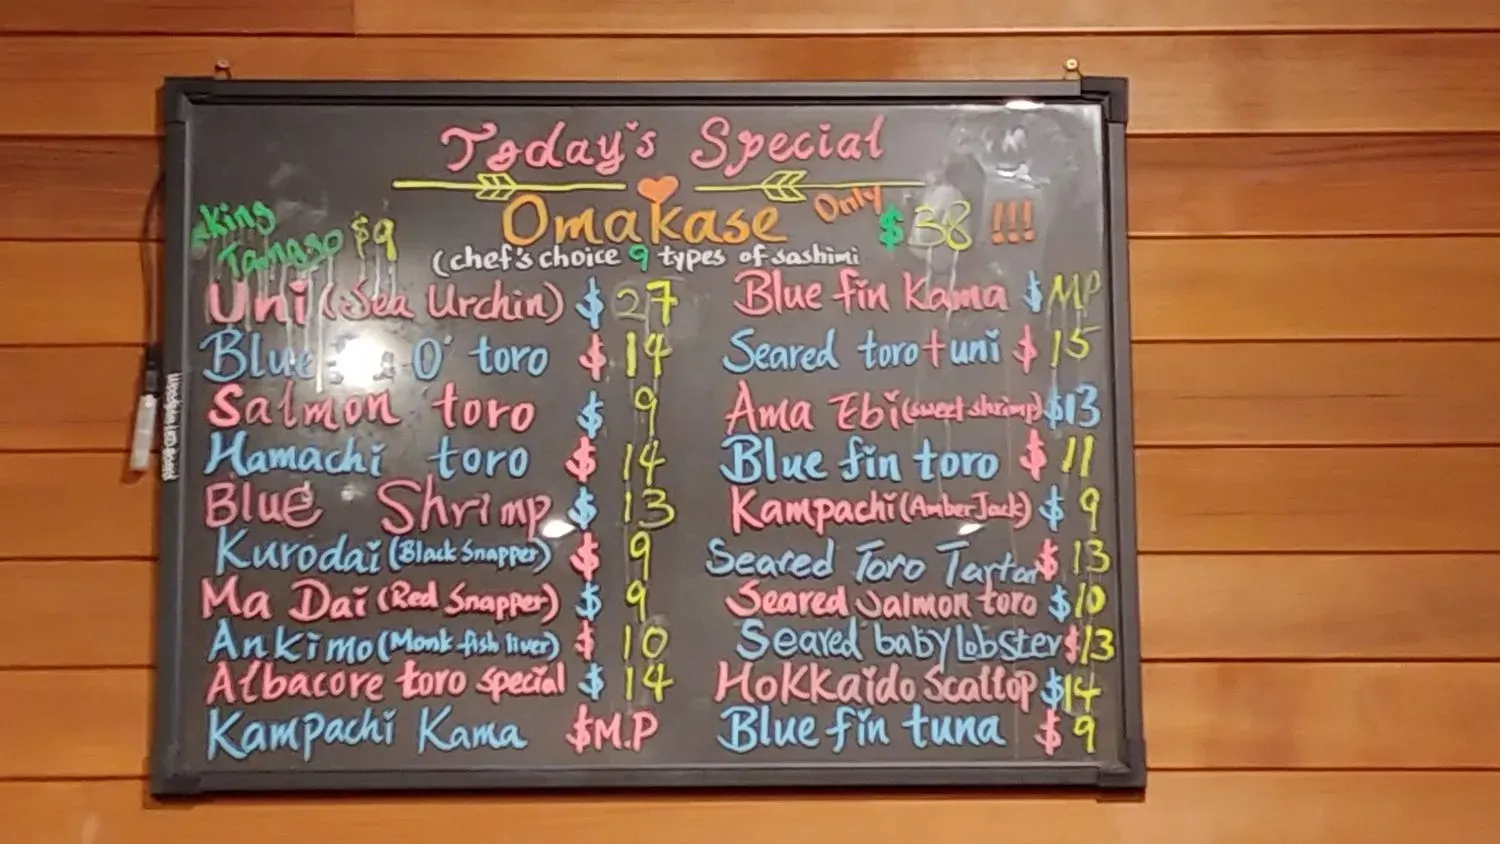 Today's Special
Omakase Only $38 !!!
(chef's choice 9 types of sashimi
King
Tamago $9
Uni (Sea Urchin) $ 27
Blue O' toro $ 14
Salmon toro $ 9
Hamachi toro $ 14
Blue Shrimp $ 13
Kurodai (Black Snapper) $ 9
Ma Dai (Red Snapper) $ 9
Ankimo (Monk fish liver) $ 10
Albacore toro special $ 14
Kampachi Kama $M.P
Blue fin Kama $ MP
Seared toro + uni $ 15
Ama Ebi (sweet shrimp) $13
Blue fin toro $ 11
Kampachi (Amber Jack) $ 9
Seared Toro Tartar $ 13
Seared Salmon toro $10
Seared baby Lobster $13
Hokkaido Scallop $14
Blue fin tuna $ 9